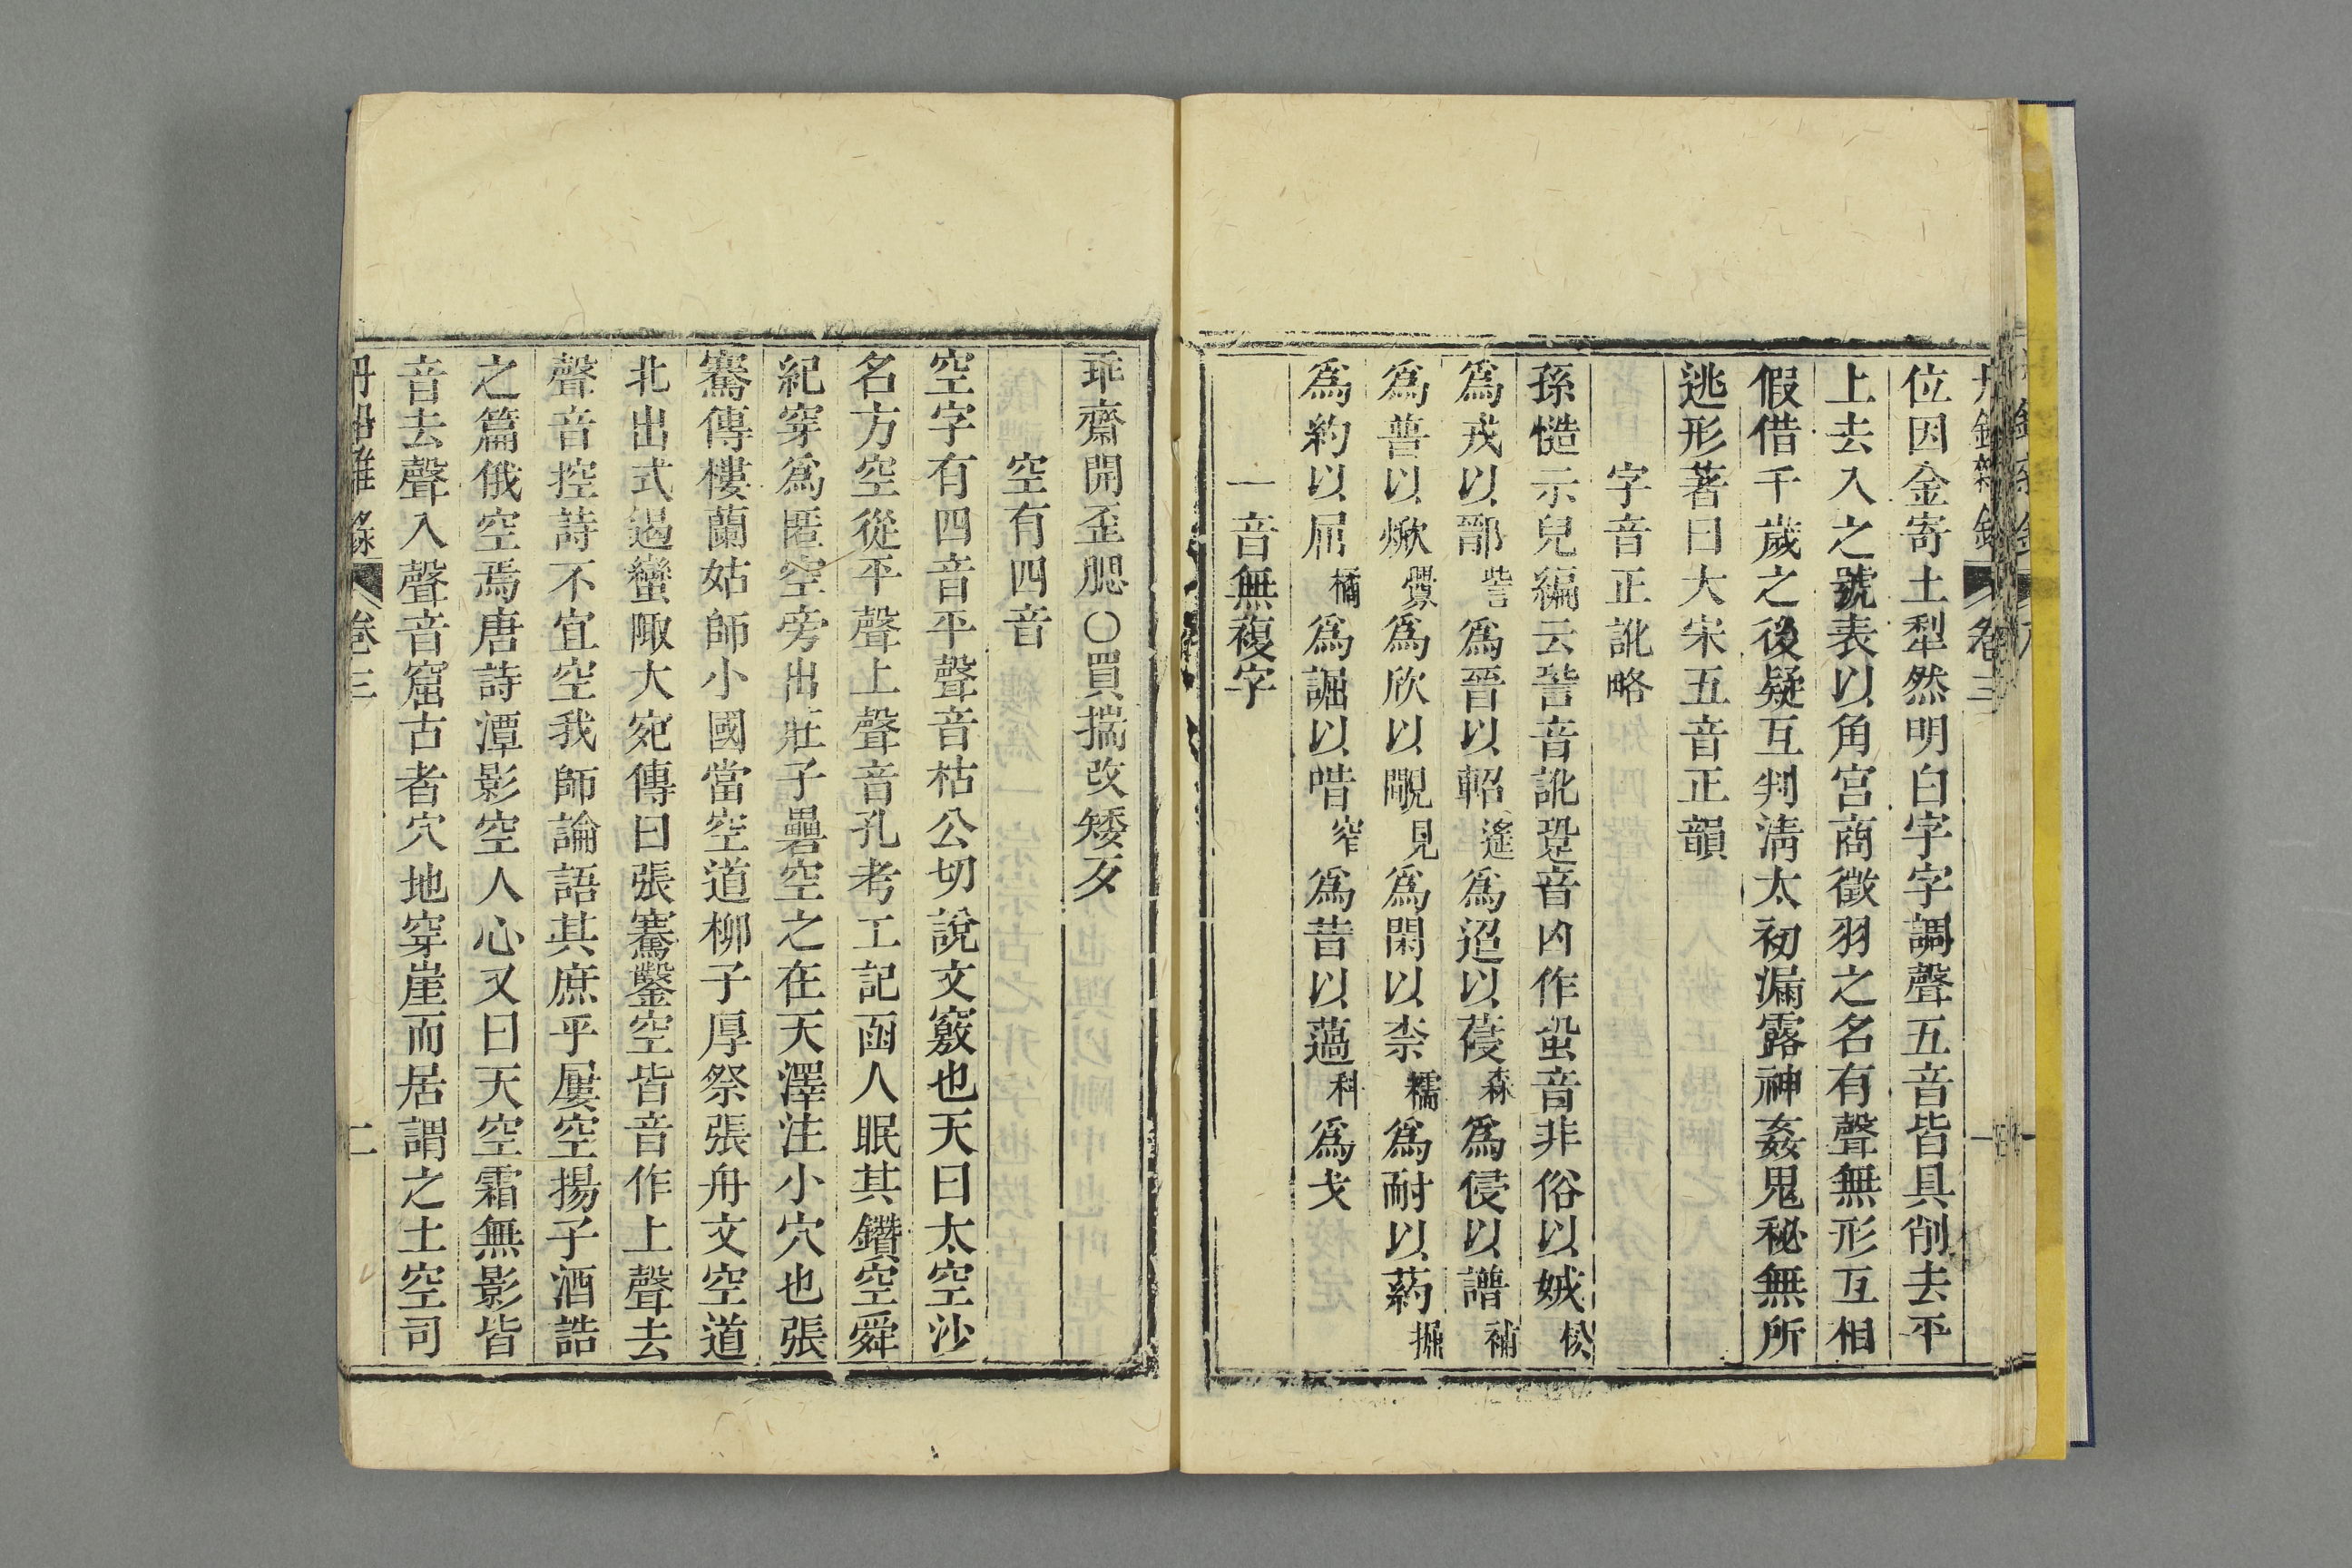 丹鉛雜錄 卷三 一
位因金寄土犁然明白字字調聲五音皆具削去平
上去入之號表以角宮商徵羽之名有聲無形互相
假借千歲之後疑互判淸太初漏露神姦鬼秘無所
逃形著曰大宋五音正韻
字音正訛略
孫愭示兒編云訾音訛跫音凶作蛩音非俗以娀松
爲戎以鄑訾爲晉以軺遙爲迢以葠森爲侵以譜補
爲普以焮釁爲欣以覵見爲閑以柰糯爲耐以葯摳
爲約以屈橘爲誳以唶窄爲昔以薖科爲戈
一音無複字
乖齋開歪腮○買揣改矮歹
空有四音
空字有四音平聲音枯公切說文竅也天曰太空沙
名方空從平聲上聲音孔考工記函人眠其鑽空舜
紀穿爲匿空旁出莊子礨空之在天澤注小穴也張
騫傳樓蘭姑師小國當空道柳子厚祭張舟文空道
北出式遏蠻陬大宛傳曰張騫鑿空皆音作上聲去
聲音控詩不宜空我師論語其庶乎屢空揚子酒誥
之篇俄空焉唐詩潭影空人心又曰天空霜無影皆
音去聲入聲音窟古者穴地穿崖而居謂之土空司
丹鉛雜錄 卷三 二